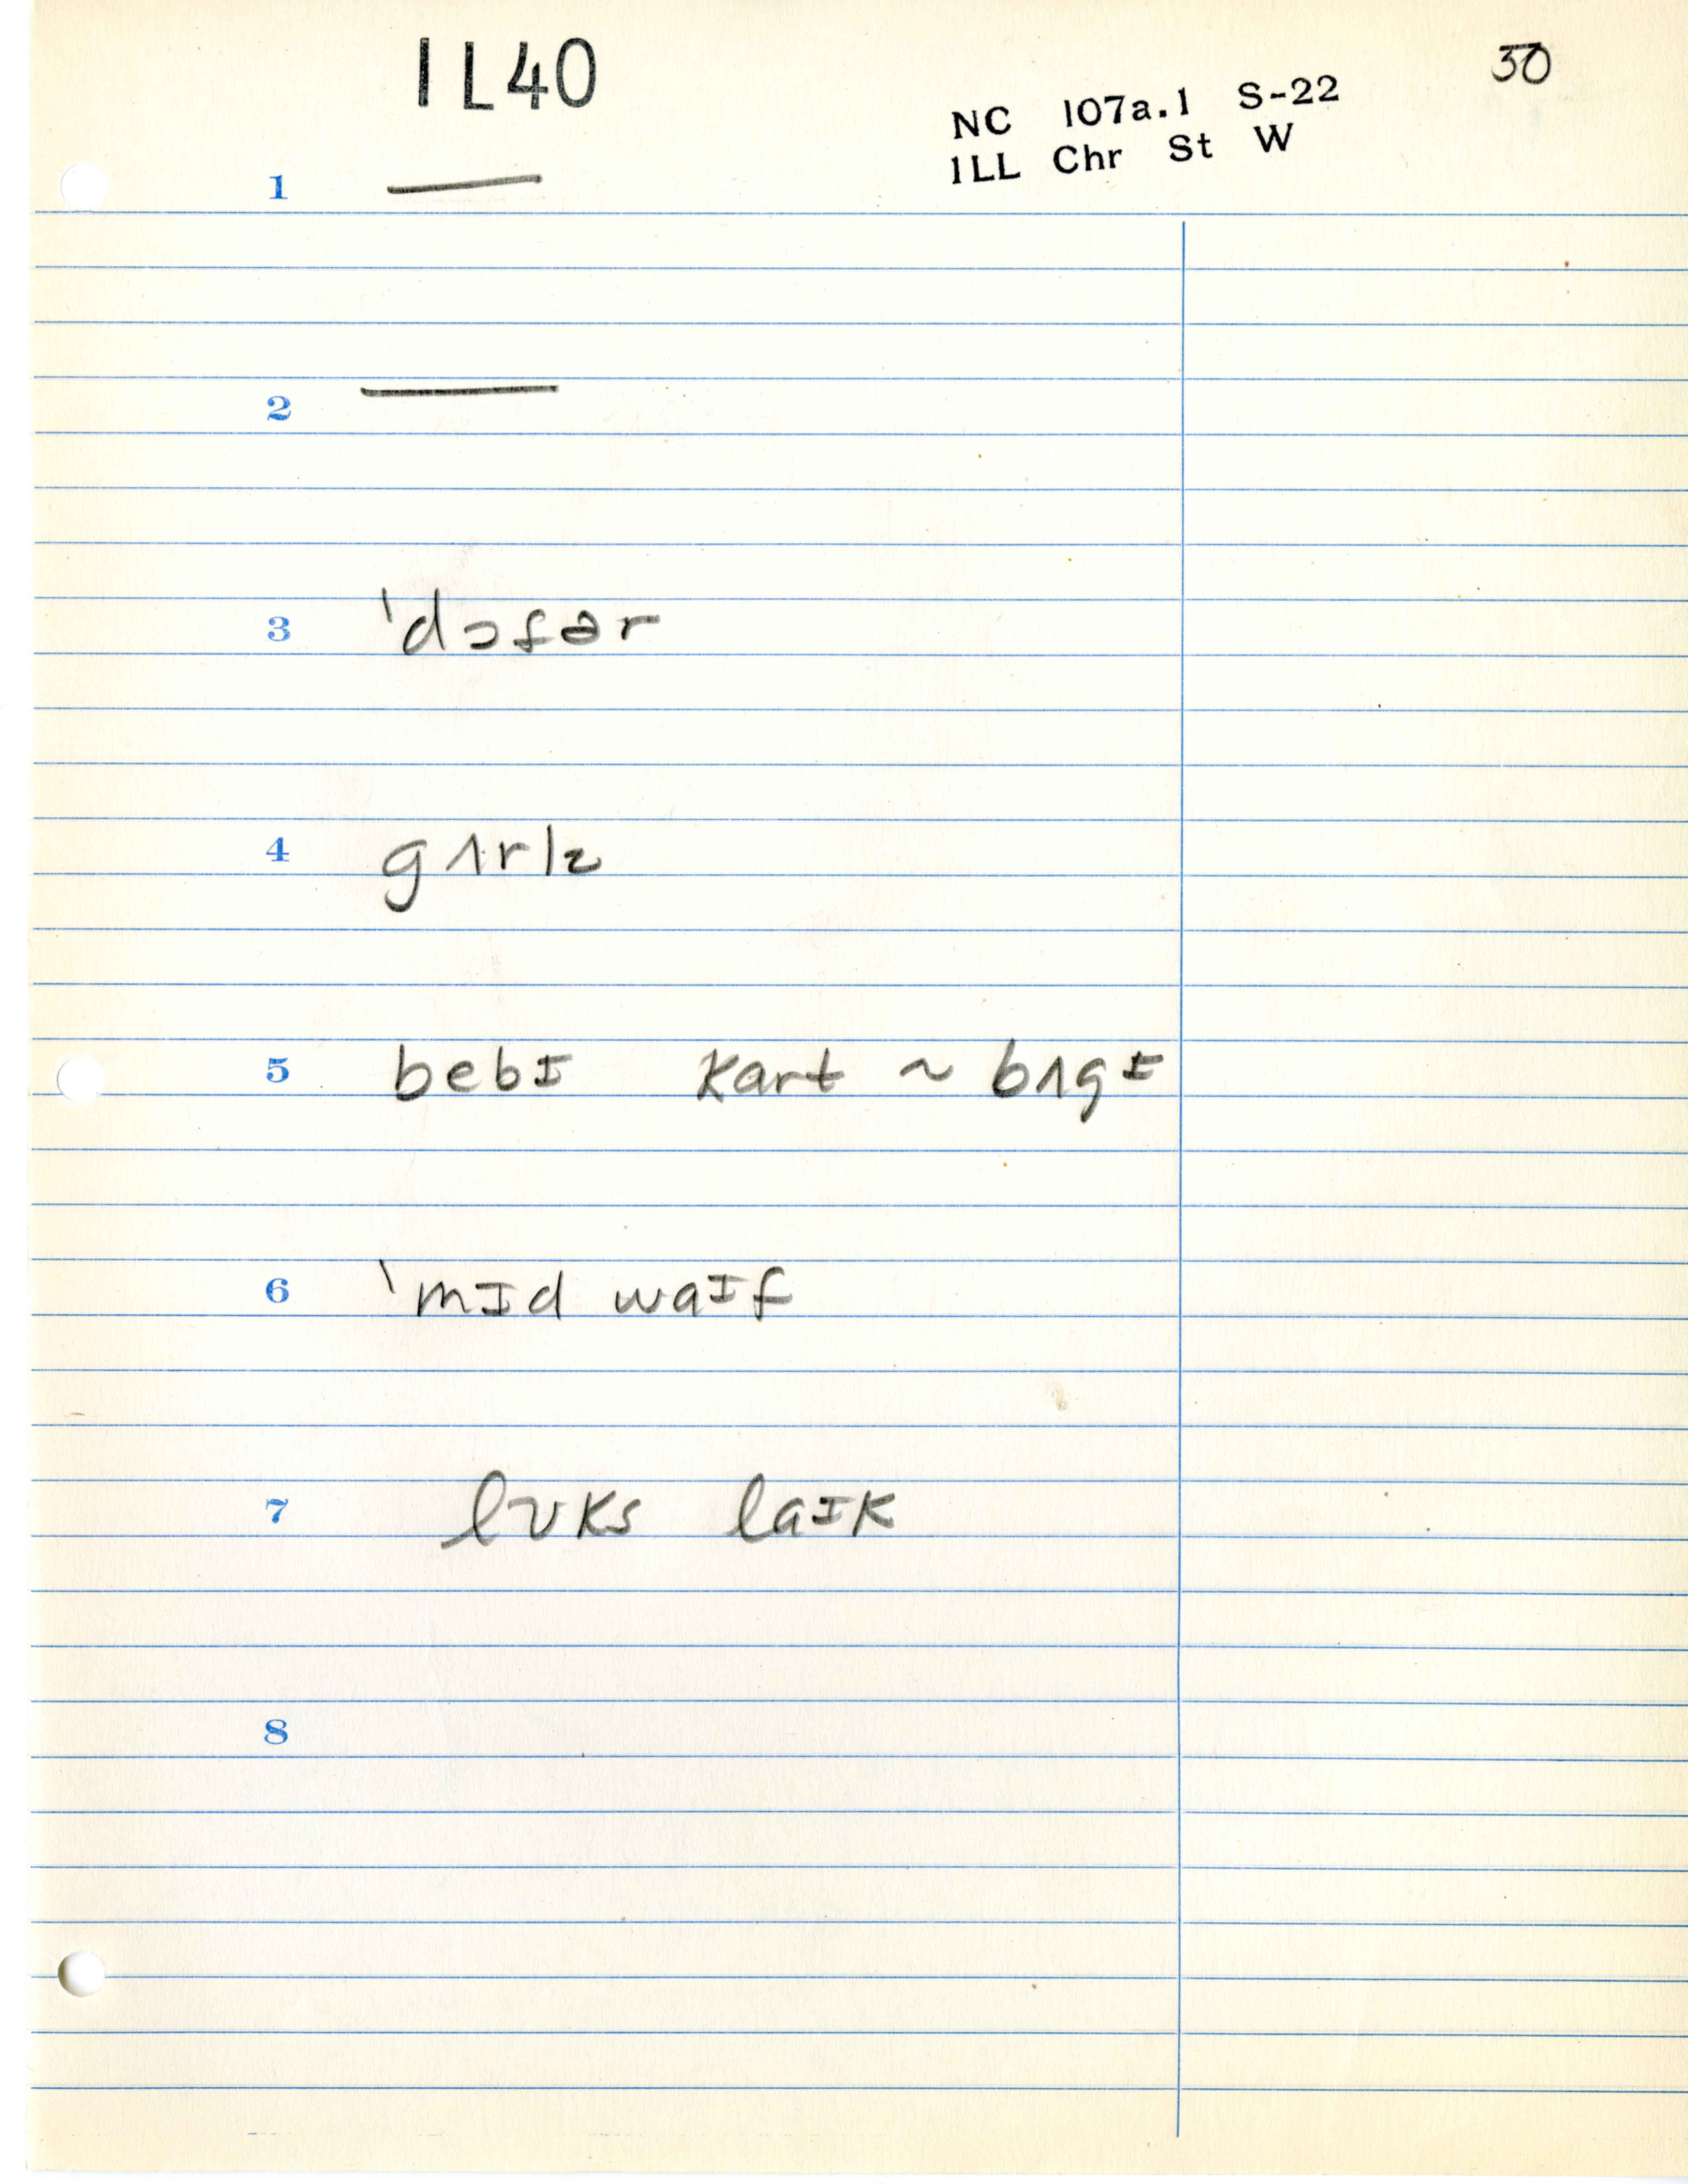 1L40
30
NC 107a.1 S-22
ILL Chr St W
1 —
2 —
3 ˈdɔfər
4 gʌrlz
5 bebɪ kart ~ bʌgɪ
6 ˈmɪd waɪf
7 lʊks laɪk
8